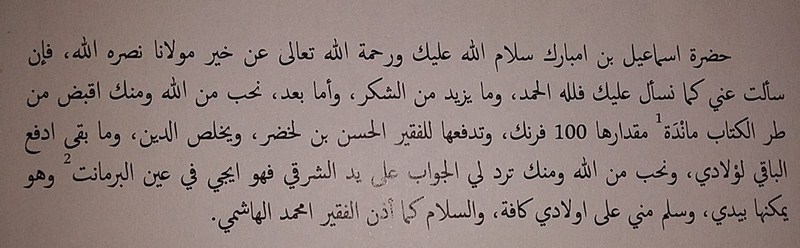 حضرة اسماعيل بن امبارك سلام الله عليك ورحمة الله تعالى عن خير مولانا نصره الله، فإن
سألت عني كما نسأل عليك فلله الحمد، وما يزيد من الشكر، وأما بعد، نحب من الله ومنك اقبض من
طر الكتاب مانْدَة1 مقدارها 100 فرنك، وتدفعها للفقير الحسن بن لخضر، ويخلص الدين، وما بقى ادفع
الباقي لؤلادي، ونحب من الله ومنك ترد لي الجواب على يد الشرقي فهو ايجي في عين البرمانت2 وهو
يمكنها بيدي، وسلم مني على اولادي كافة، والسلام كما أذن الفقير امحمد الهاشمي.